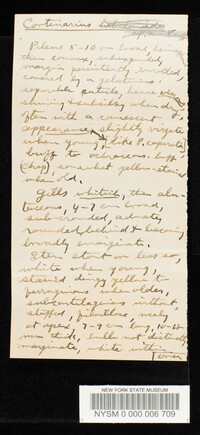 Cortinarius
Pileus 5-10 cm broad, being
then convex, subexpanded,
margin
covered by a gelatinous
separable pellicle, hence viscid
shining & subsilky when dry,
often with a canescent
appearance slightly virgate
when young, like P. caperata
buff to ochraceous-buff
(Chap), somewhat yellow-stained
when old.
Gills whitish, then alu-
taceous, 4-7 mm broad,
sub-crowded, adnate,
rounded behind & becoming
broadly emarginate.
Stem stout or less so,
white when young,
stained dingy yellow to
ferruginous when older,
subcartilaginous without,
stuffed, fibrillose, mealy
at apex, 7-9 cm long, 10-12
mm thick, bulb not distinctly
marginate, white within
over
NEW YORK STATE MUSEUM
NYSM 0 000 006 709